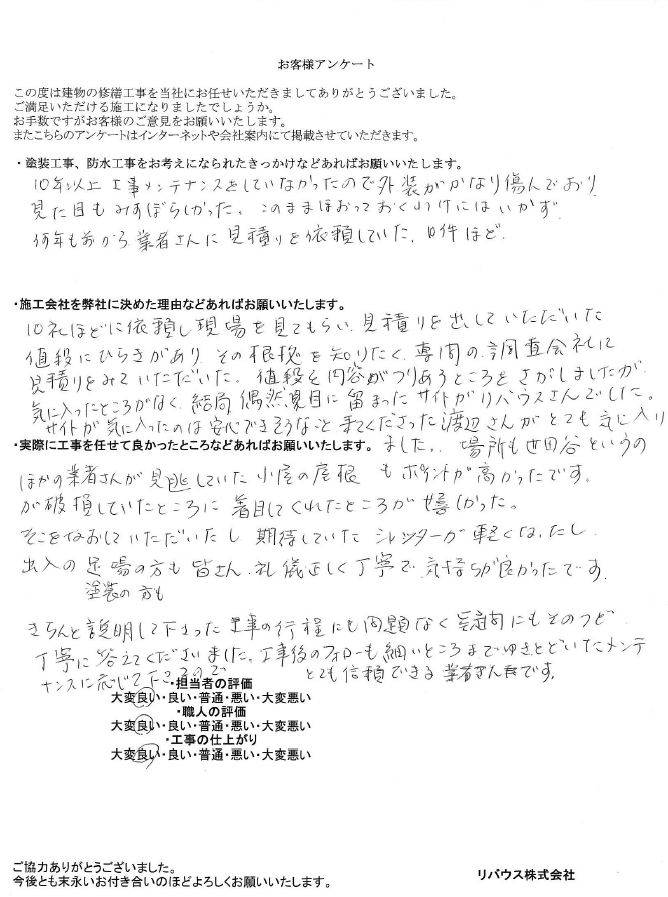 お客様アンケート
この度は建物の修繕工事を当社にお任せいただきましてありがとうございました。
ご満足いただける施工になりましたでしょうか。
お手数ですがお客様のご意見をお願いいたします。
またこちらのアンケートはインターネットや会社案内にて掲載させていただきます。
・塗装工事、防水工事をお考えになられたきっかけなどあればお願いいたします。
10年以上 工事メンテナンスをしていなかったので外装がかなり傷んでおり
見た目もみすぼらしかった。このままほおっておくわけにはいかず
何年も前から業者さんに見積りを依頼していた。10件ほど。
・施工会社を弊社に決めた理由などあればお願いいたします。
10社ほどに依頼し現場を見てもらい、見積りを出していただいた
値段にひらきがあり その根拠を知りたく、専門の調査会社に
見積りをみていただいた。値段と内容がつりあうところをさがしましたが
気に入ったところがなく、結局 偶然見目に留まったサイトがリバウスさんでした。
サイトが気に入ったのは安心できそうなと 来てくださった渡辺さんがとても気に入り
・実際に工事を任せて良かったところなどあればお願いいたします。
ました。場所も世田谷というの
もポイントが高かったです。
ほかの業者さんが見逃していた小屋の屋根
が破損していたところに着目してくれたところが嬉しかった。
そこをなおしていただいたし 期待していた シャッターが軽くなったし
出入の足場の方も皆さん、礼儀正しく丁寧で気持ちが良かったです
塗装の方も
きちんと説明して下さった 工事の行程にも問題なく 質問にもそのつど
丁寧に答えてくださいました。工事後のフォローも細いところまでゆきとどいたメンテ
ナンスに応じて下さるので とても信頼できる業者さんです。
・担当者の評価
大変良い・良い・普通・悪い・大変悪い
・職人の評価
大変良い・良い・普通・悪い・大変悪い
・工事の仕上がり
大変良い・良い・普通・悪い・大変悪い
ご協力ありがとうございました。
今後とも末永いお付き合いのほどよろしくお願いいたします。
リバウス株式会社